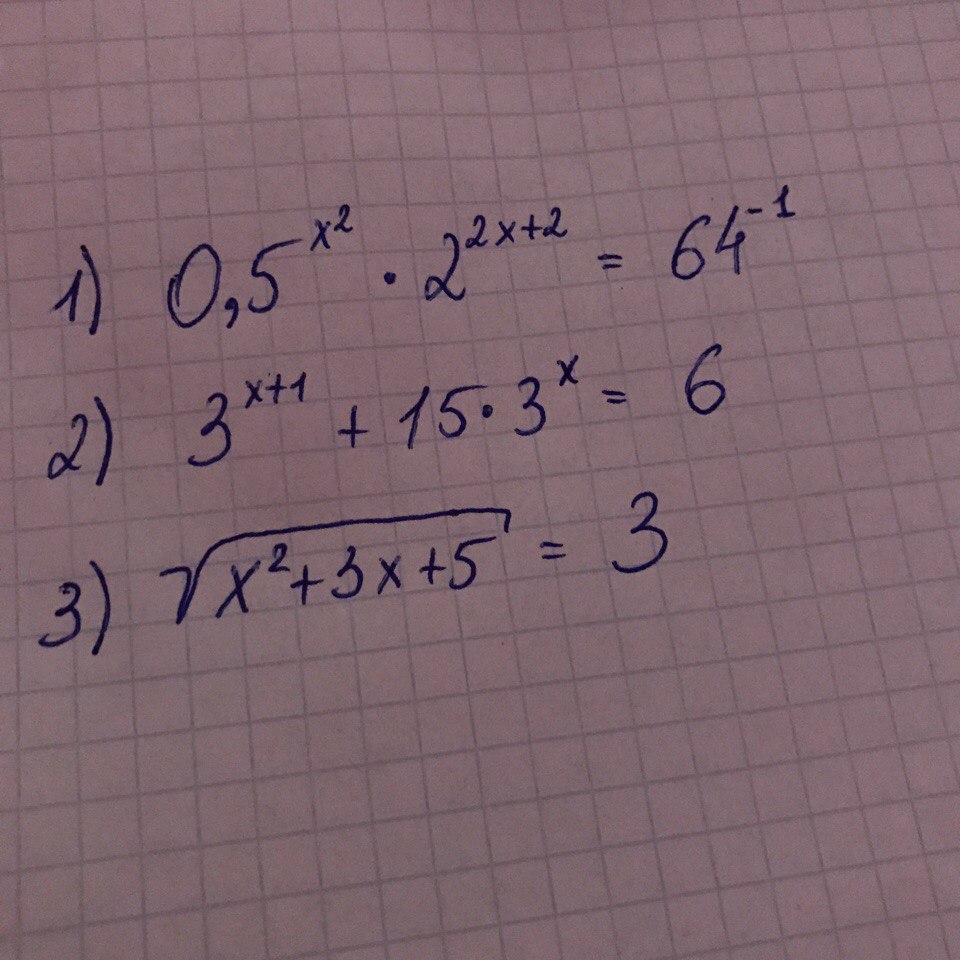 1) 0,5^{x^2} · 2^{2x+2} = 64^{-1}
2) 3^{x+1} + 15·3^x = 6
3) √(x²+3x+5) = 3